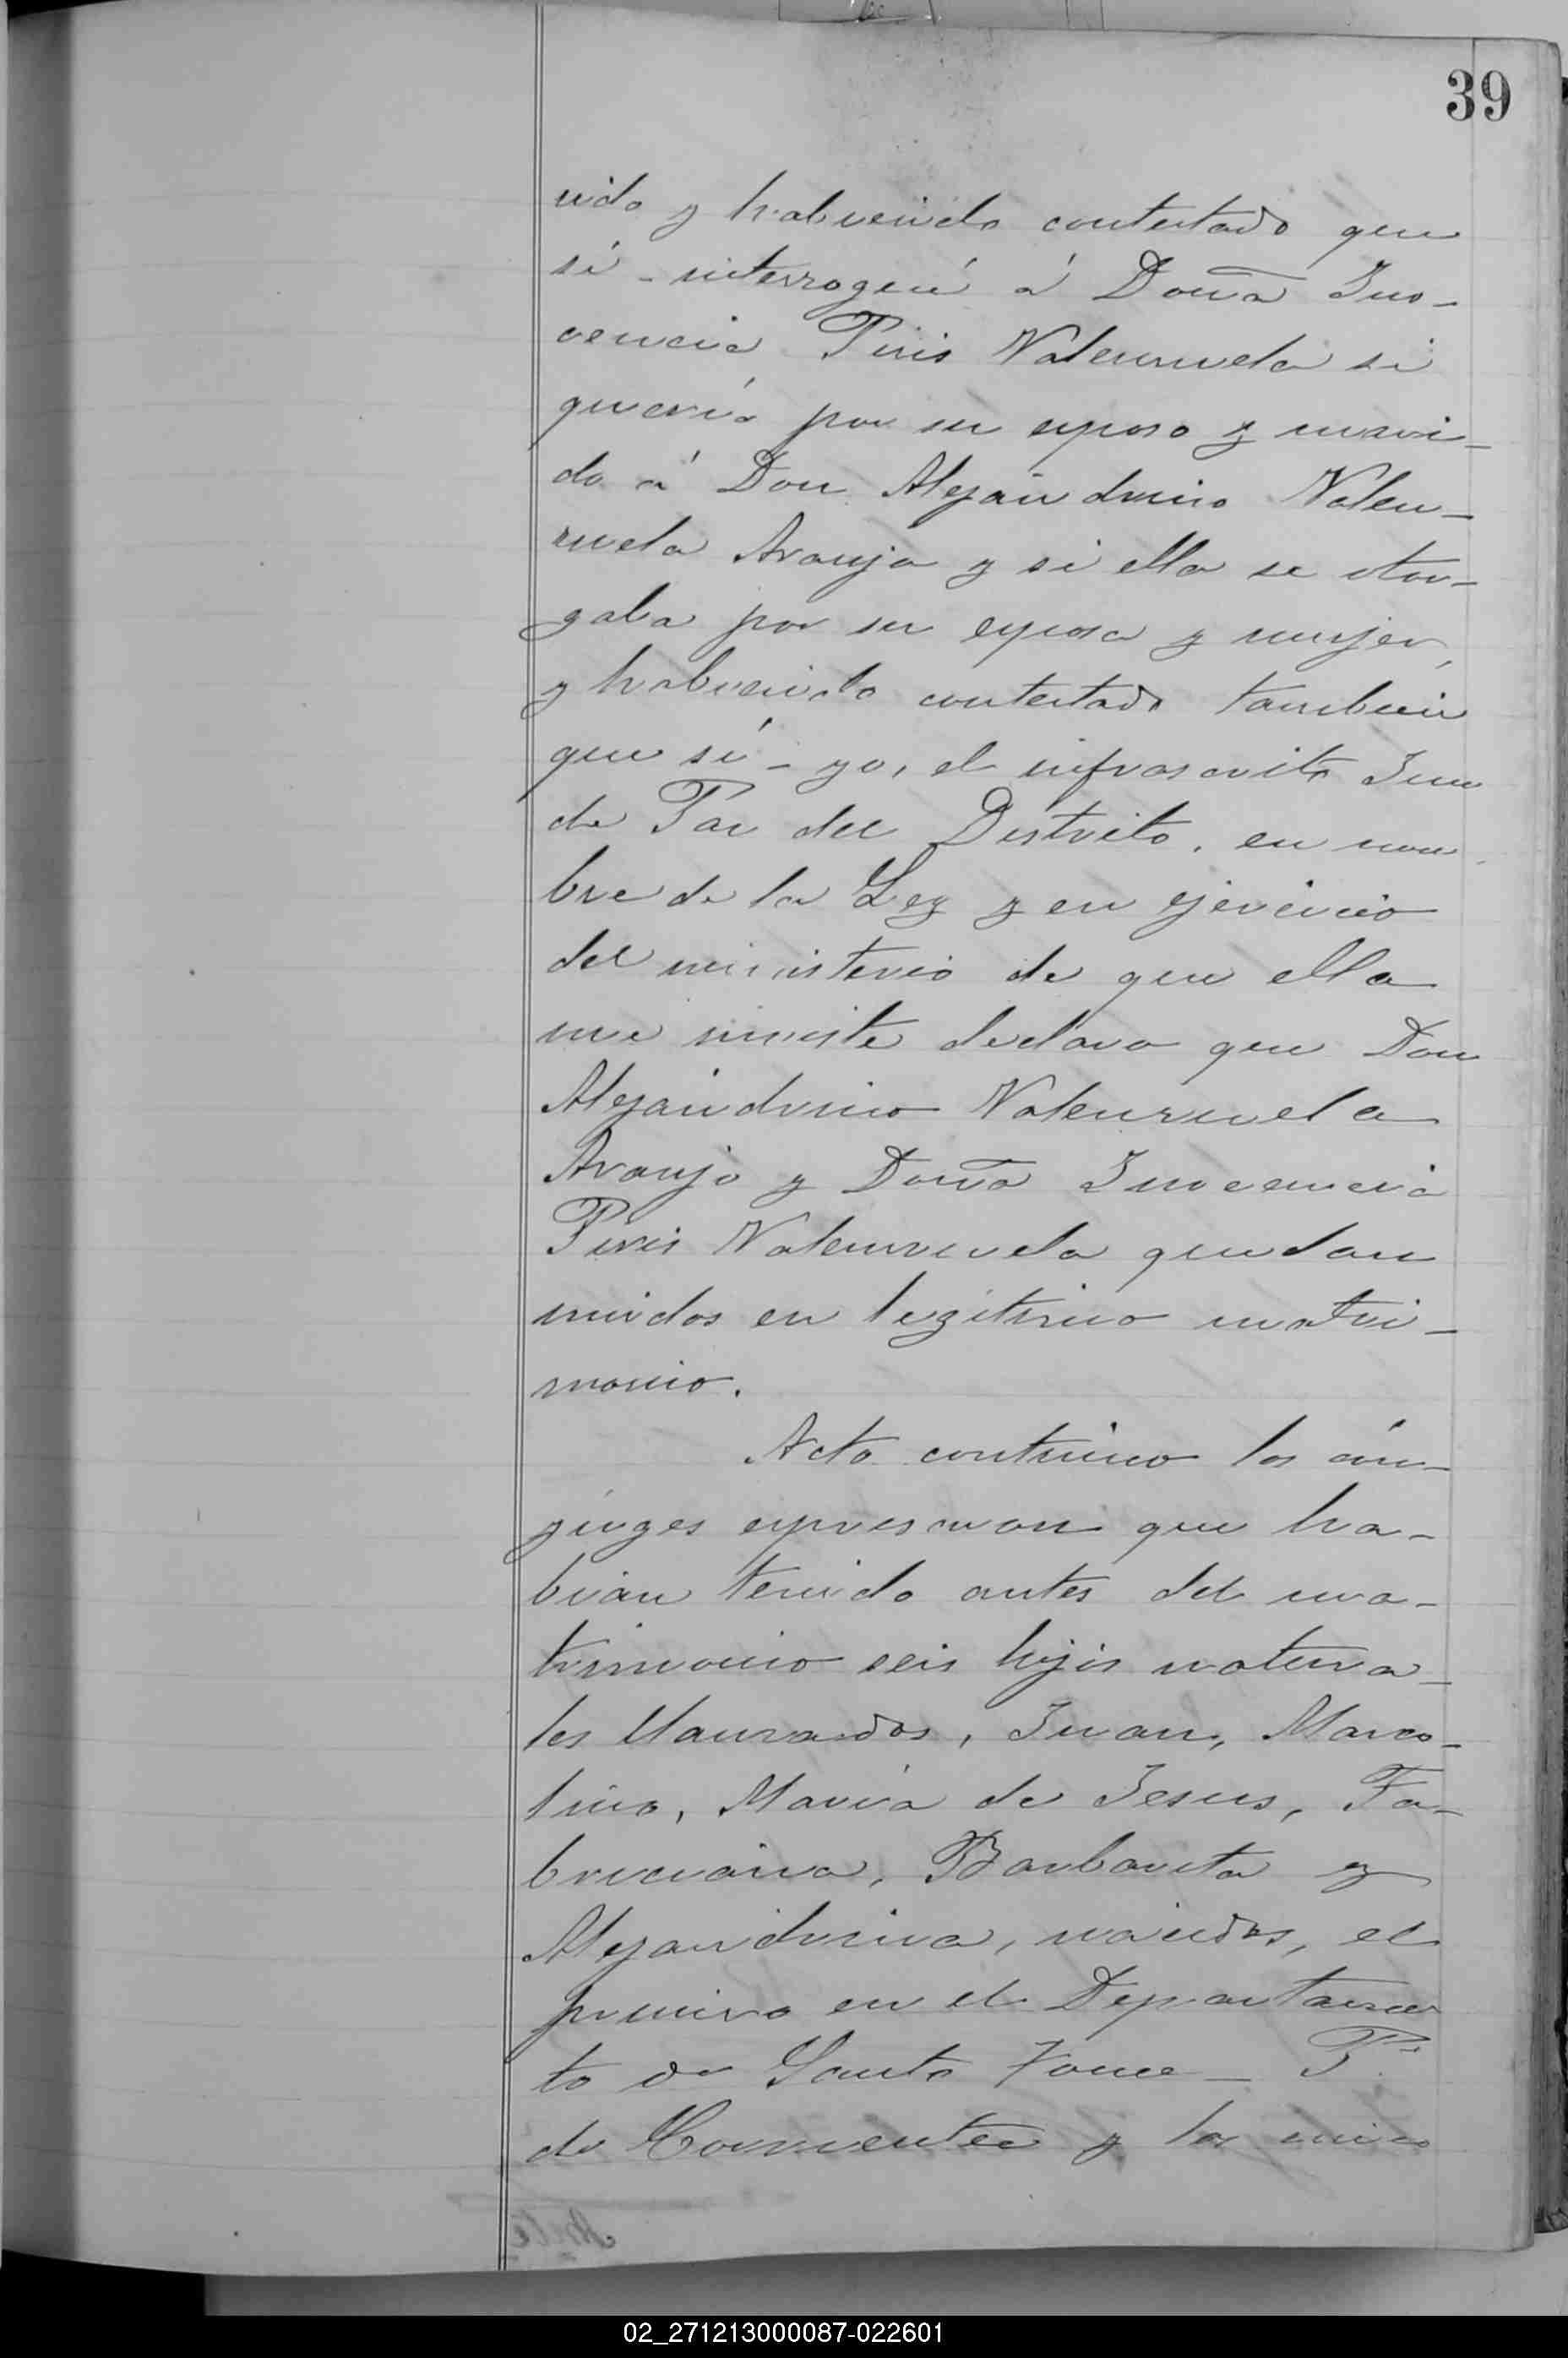 39
rido y habiendo contestado que
sí - interrogué á Doña Ino-
cencia Piris Valenzuela si
quería por su esposo y mari-
do á Don Alejandrino Valen-
zuela Araujo y si ella se otor-
gaba por su esposa y mujer,
y habiendo contestado tambien
que sí - yo, el infrascrito Juez
de Paz del Distrito, en nom
bre de la Ley y en ejercicio
del ministerio de que ella
me inviste declaro que Don
Alejandrino Valenzuela
Araujo y Doña Inocencia
Piris Valenzuela quedan
unidos en legítimo matri-
monio.
Acto contínuo los cón-
yuges expresaron que ha-
bían tenido antes del ma-
trimonio seis hijos natura-
les llamados, Juan, Marco-
lino, María de Jesus, Fa-
briciana, Barbarita y
Alejandrina, nacidos, el
primero en el Departamen
to de Santo Tomé - P.
de Corrientes y los cinco
02_271213000087-022601